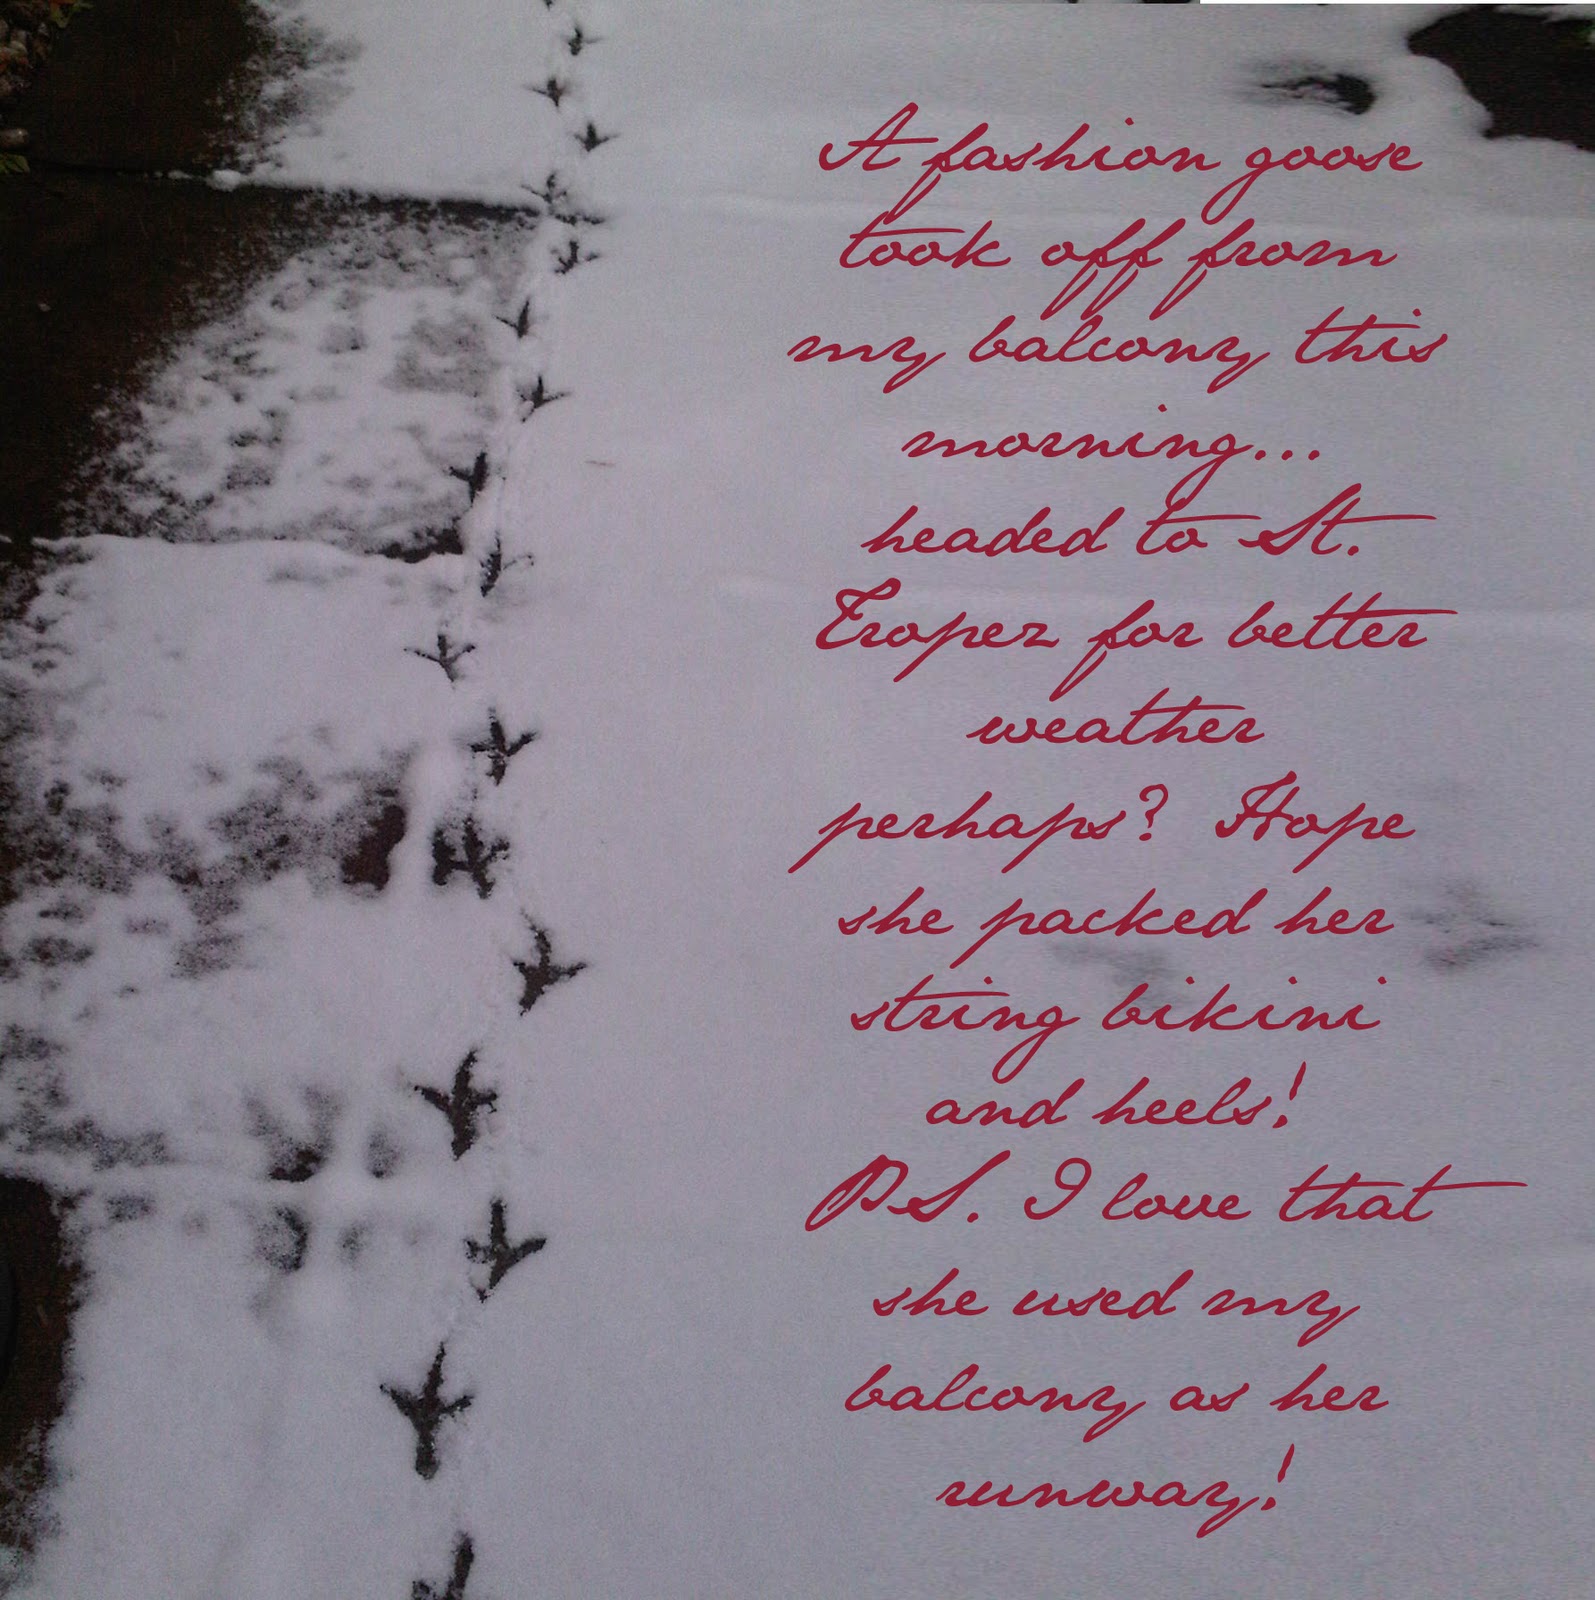 A fashion goose
took off from
my balcony this
morning...
headed to St.
Tropez for better
weather
perhaps? Hope
she packed her
string bikini
and heels!
PS. I love that
she used my
balcony as her
runway!